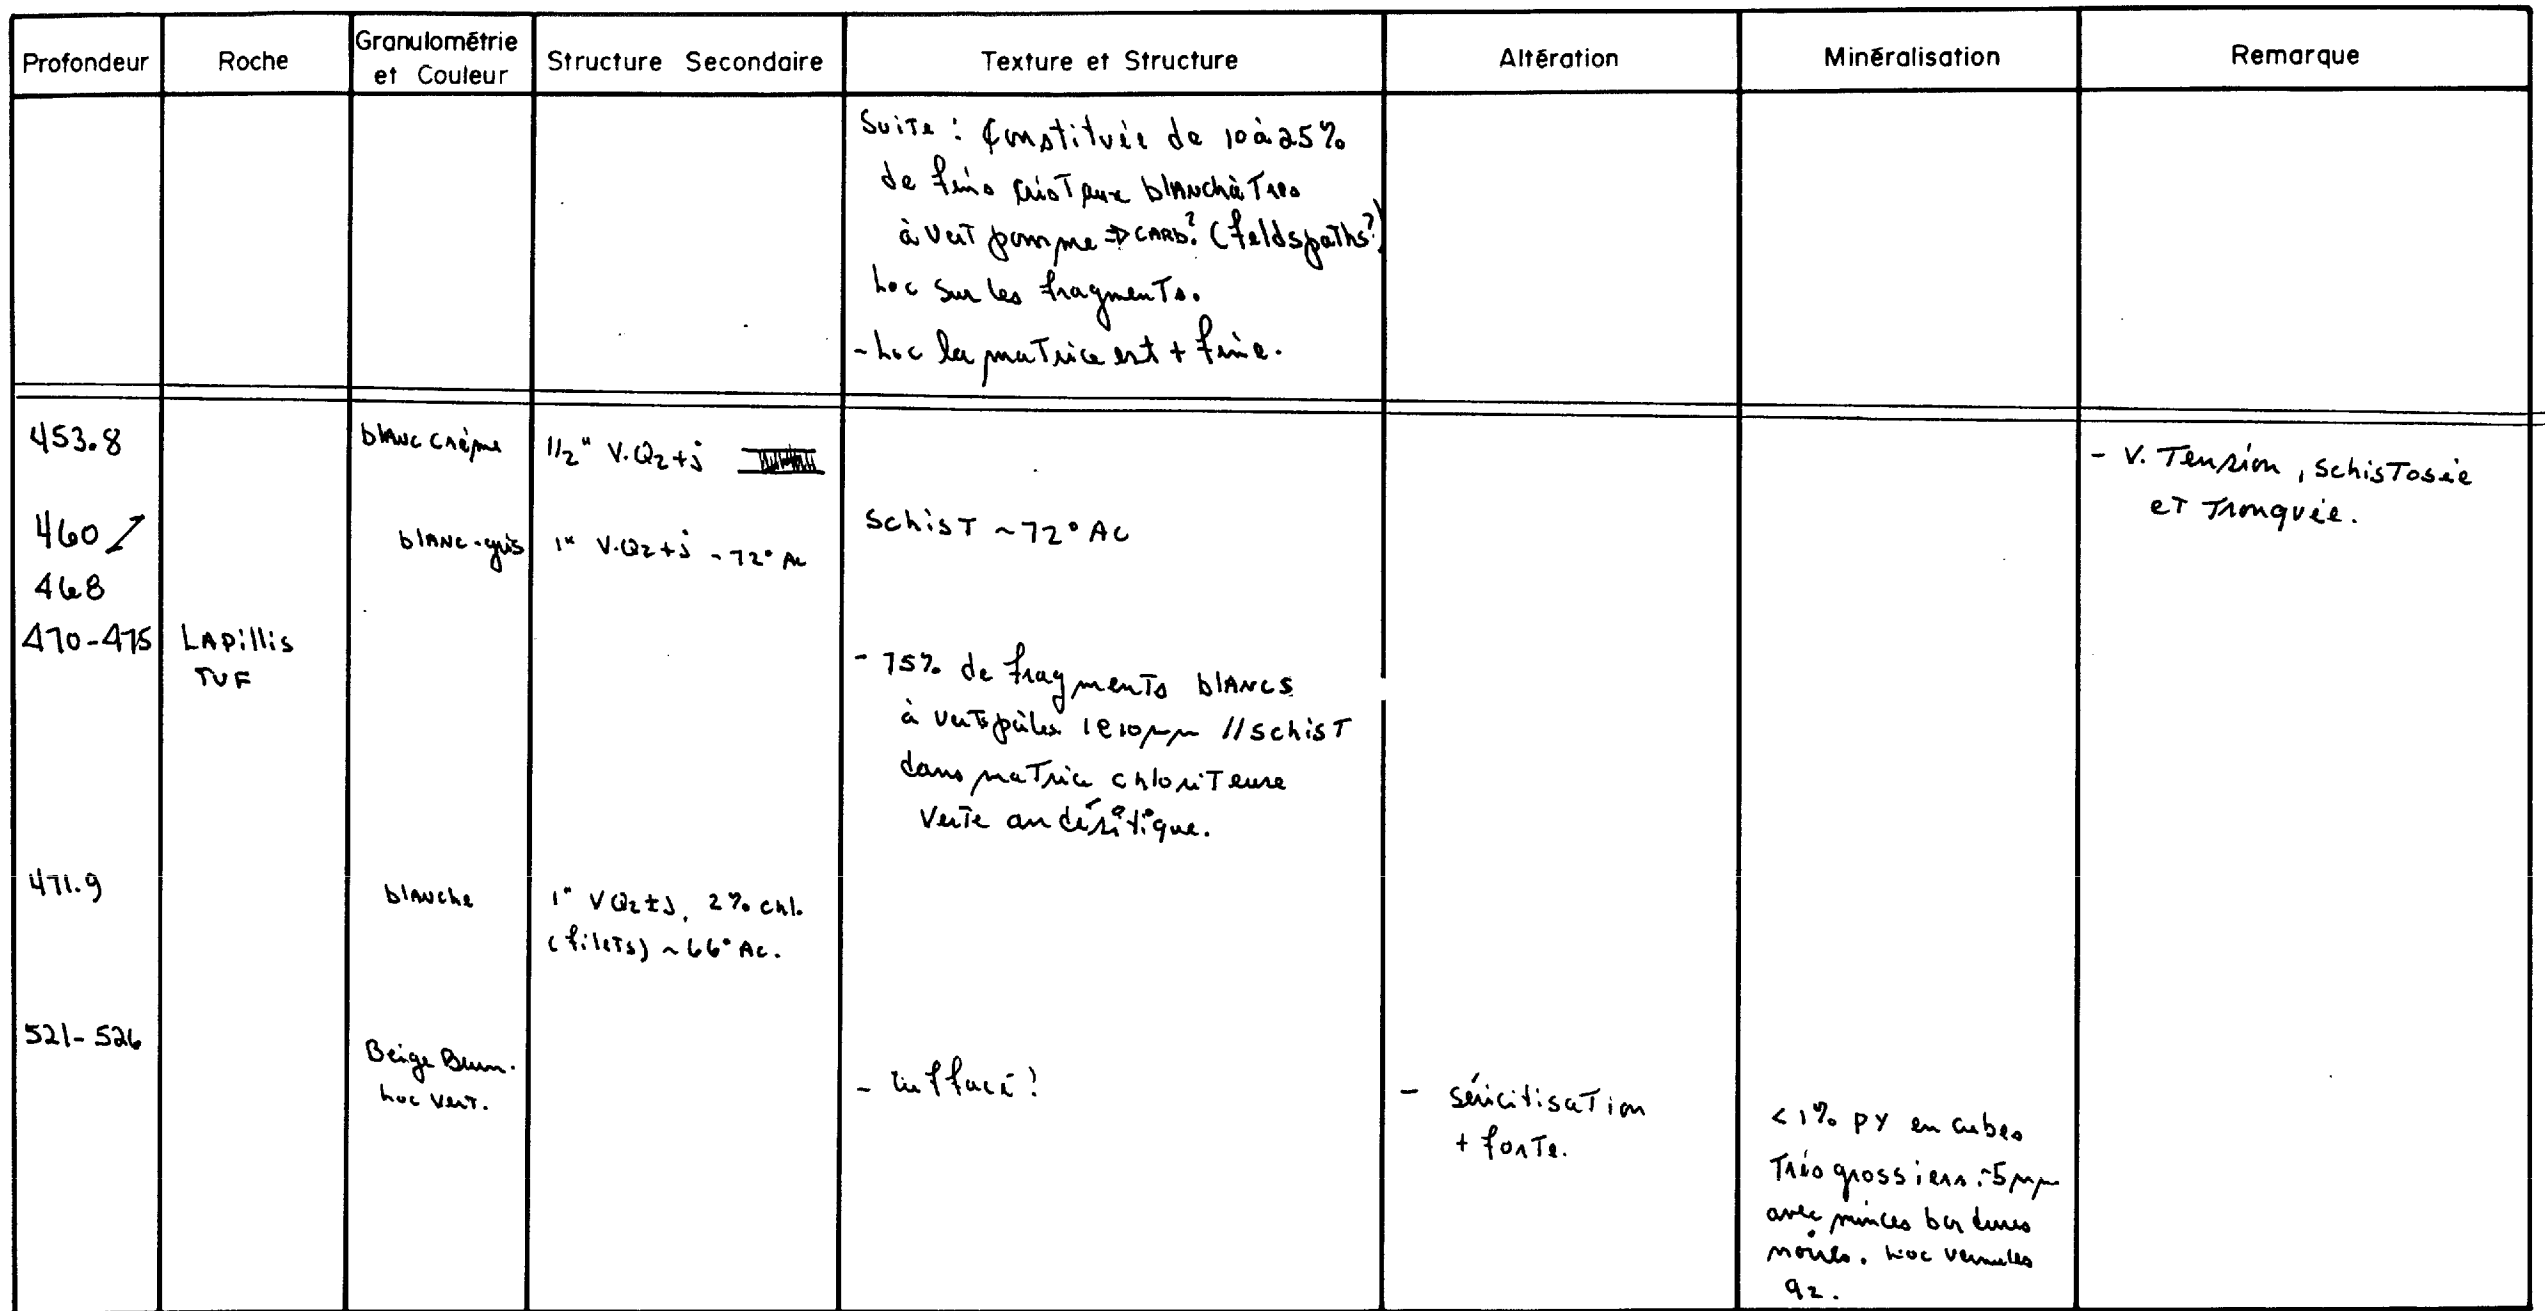 Profondeur Roche Granulométrie et Couleur Structure Secondaire Texture et Structure Altération Minéralisation Remarque
Suite : Constituée de 10 à 25%
de fins cristaux blanchâtres
à vert pomme => CARB.? (feldspaths?)
Loc sur les fragments.
- Loc la matrice est + fine.
453.8 blanc crème 1/2" V.Qz+j - V. Tension, schistosée
et tronquée.
460 blanc-gris 1" V.Qz+j ~72° Ac Schist ~72° Ac
468
470-475 Lapillis
TUF
- 75% de fragments blancs
à verts pâles 1@10mm // schist
dans matrice chloriteuse
verte andésitique.
471.9 blanche 1" VQz±j, 2% chl.
(filets) ~66° Ac.
521-526 Beige Brun.
Loc vert.
- séricitisation
+ forte.
<1% PY en cubes
Très grossiers ~5mm
avec minces bordures
noires. Loc veinules
qz.